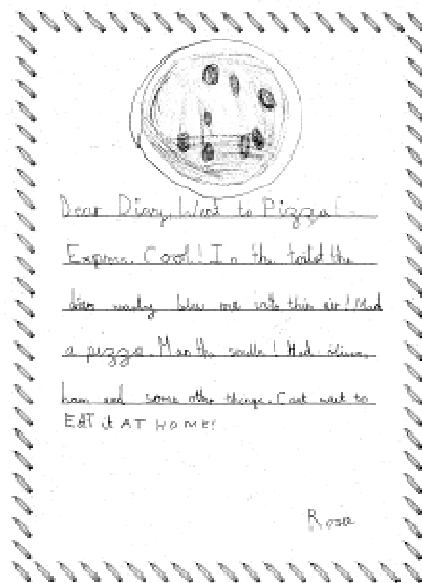 Dear Diary, Went to Pizza
Express. Cool! In the toilet the
drier nearly blew me into thin air! Made
a pizza. Man the smell! Had olives,
ham and some other things. Cant wait to
EAT it AT HOME!
Rosa